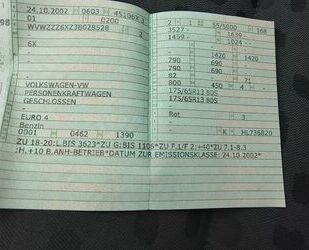 24.10.2002 0603 45196X3
01 0200
WVWZZZ6XZ3B028528 2
-
6X
-
-
VOLKSWAGEN-VW
PERSONENKRAFTWAGEN
GESCHLOSSEN
EURO 4
Benzin
0001 0462 1390
2 1 35/5000 168
3527- 1639-
1459- 1024--
- 1420 1420
790 690 -
790 690 -
82 71 -
800 450 4
175/65R13 80S
175/65R13 80S
Rot 3
K HL736820
ZU 18-20:L.BIS 3623*ZU G:BIS 1106*ZU F.1/F 2:+40*ZU 7.1-8.3
:H.+10 B.ANH-BETRIEB*DATUM ZUR EMISSIONSKLASSE: 24.10.2002*